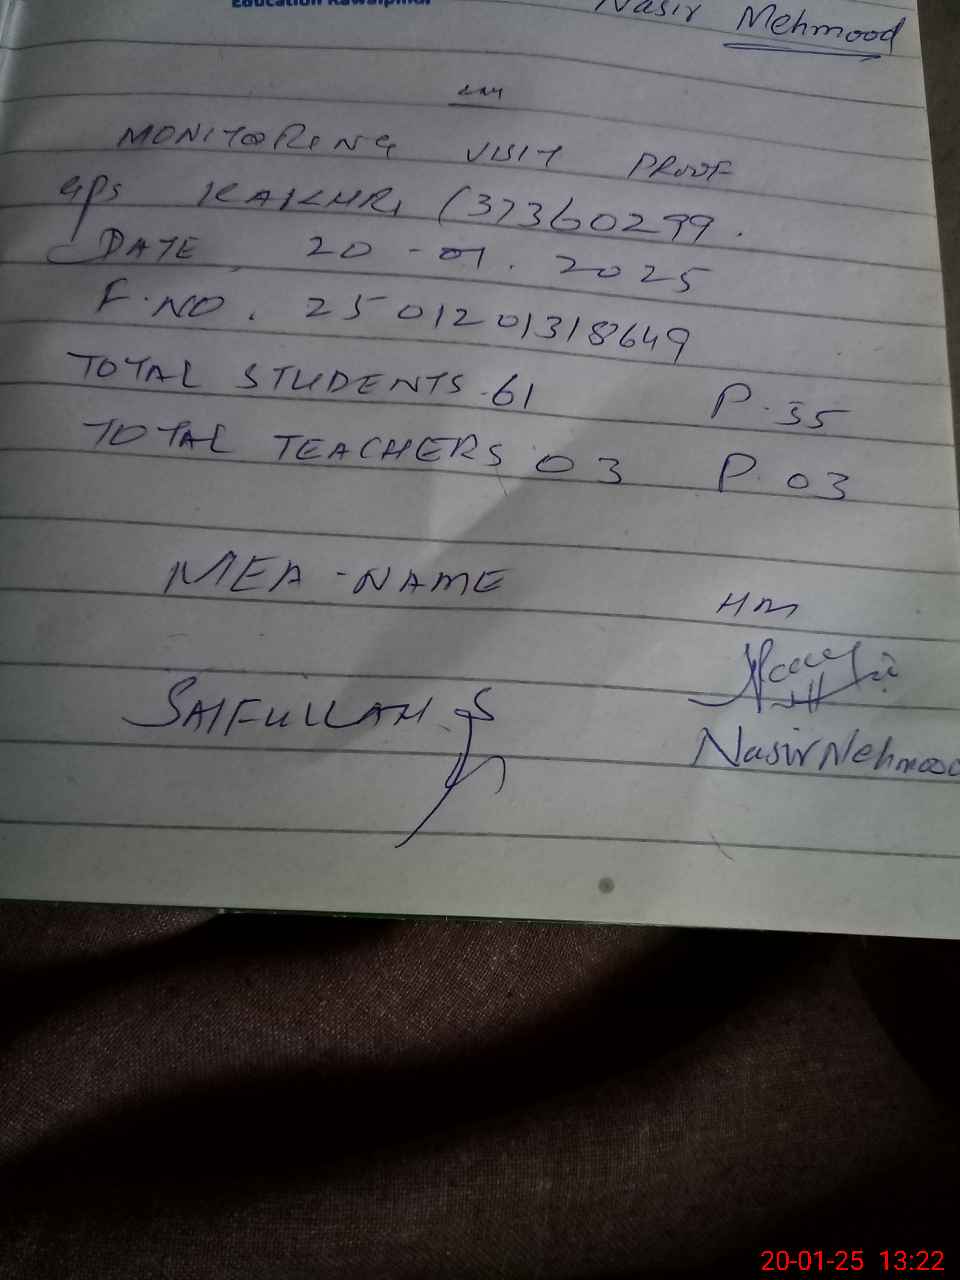 Education Rawalpindi
Nasir Mehmood
MONITORING VISIT PROOF
GPS KAKHRI (37360299.
DATE 20-01.2025
F.NO. 2501201318649
TOTAL STUDENTS.61 P.35
TOTAL TEACHERS 03 P.03
MEA-NAME
HM
SAIFULLAH
Nasir Mehmood
20-01-25 13:22